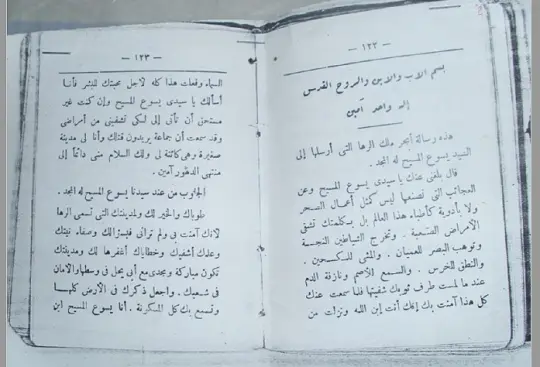 — ١٢٢ —
بسم الاب والابن والروح القدس
إله واحد آمين
هذه رسالة أبجر ملك الرها التى أرسلها إلى
السيد يسوع المسيح له المجد.
قال بلغنى عنك يا سيدى يسوع المسيح وعن
العجائب التى تصنعها ليس كمثل أعمال السحر
ولا بأدوية كأطباء هذا العالم بل بكلمتك تشفى
الأمراض الصعبة. وتخرج الشياطين النجسة
وتوهب البصر للعميان. والمشى للمكسحين.
والنطق للخرس. والسمع للأصم ونازفة الدم
عند ما لمست طرف ثوبك شفيتها فلما سمعت عنك
كل هذا آمنت بك إنك أنت إبن الله ونزلت من
— ١٢٣ —
السماء وفعلت هذا كله لاجل محبتك للبشر فأنا
أسألك يا سيدى يسوع المسيح وإن كنت غير
مستحق أن تأتى إلى لكى تشفينى من أمراضى
وقد سمعت أن جماعة يريدون قتلك وأنا لى مدينة
صغيرة وهى كائنة لى ولك السلام منى دائماً إلى
منتهى الدهور آمين.
الجواب من عند سيدنا يسوع المسيح له المجد.
طوباك والخير لك ولمدينتك التى تسمى الرها
لانك آمنت بى ولم ترانى فبسؤالك وصفاء نيتك
وعدك أشفيك وخطاياك أغفرها لك ومدينتك
تكون مباركة ومجدى مع أبى يحل فى وسطها والامان
فى شعبك. واجعل ذكرك فى الأرض كلها
وتسمع بك كل المسكونة. أنا يسوع المسيح ابن